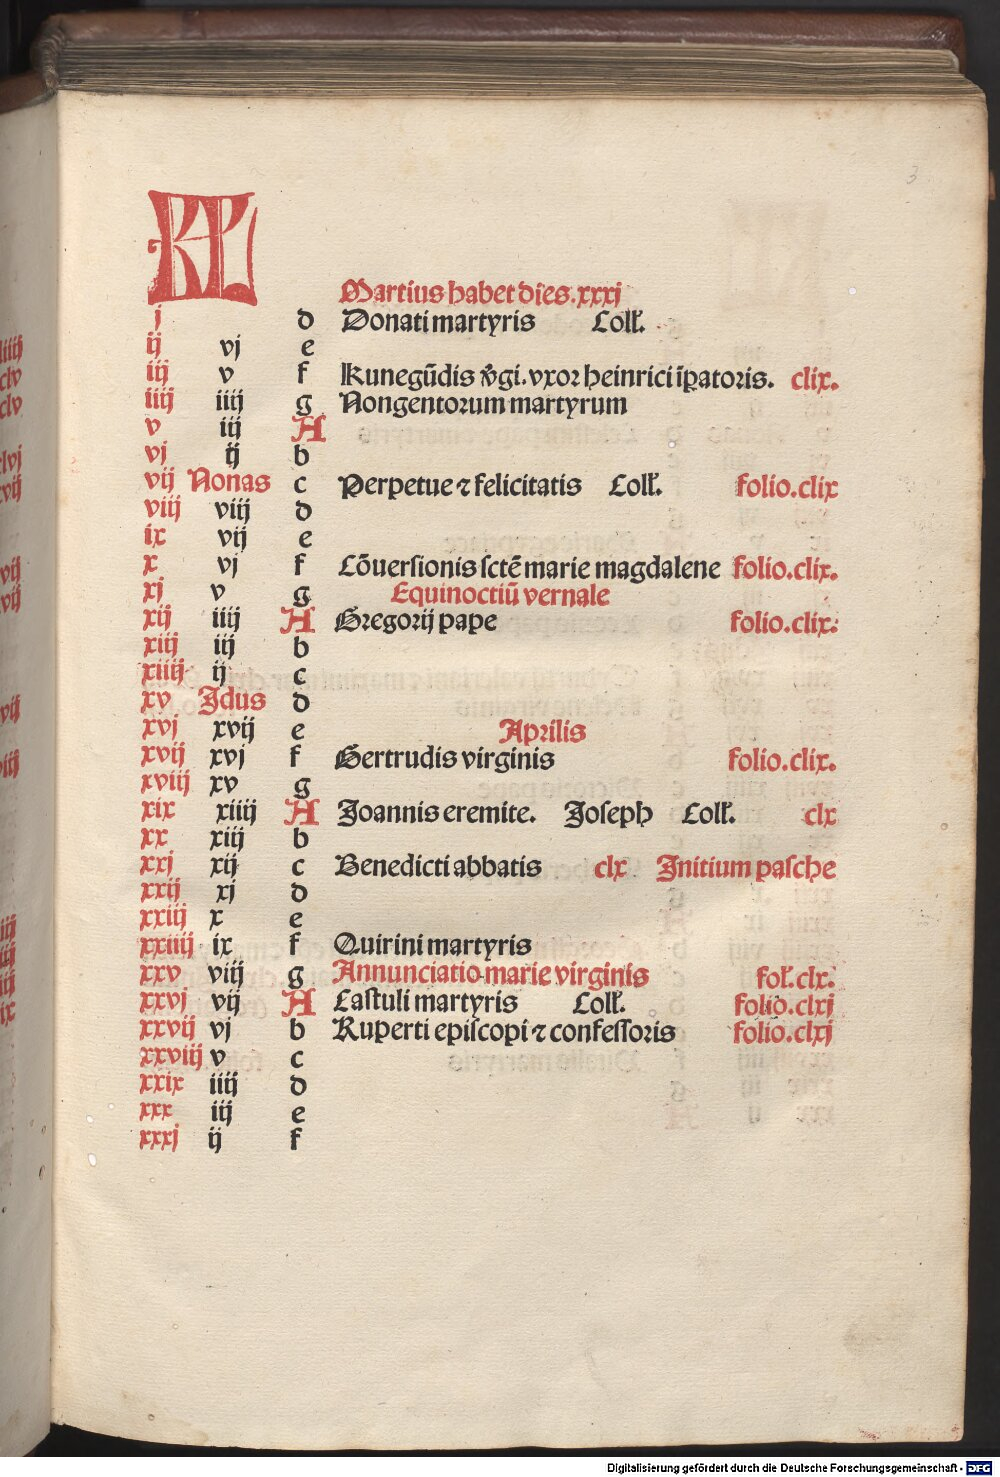 3
KL
Martius habet dies.xxxj
j d Donati martyris Coll.
ij vj e
iij v f Kunegūdis v̄gi. vxor heinrici īꝑatoris. clix.
iiij iiij g Nongentorum martyrum
v iij A
vj ij b
vij Nonas c Perpetue ⁊ felicitatis Coll. folio.clix
viij viij d
ix vij e
x vj f Cōuersionis sctē marie magdalene folio.clix.
xj v g Equinoctiū vernale
xij iiij A Gregorij pape folio.clix.
xiij iij b
xiiij ij c
xv Idus d
xvj xvij e Aprilis
xvij xvj f Gertrudis virginis folio.clix.
xviij xv g
xix xiiij A Joannis eremite. Joseph Coll. clx
xx xiij b
xxj xij c Benedicti abbatis clx Initium pasche
xxij xj d
xxiij x e
xxiiij ix f Quirini martyris
xxv viij g Annunciatio marie virginis fol.clx.
xxvj vij A Castuli martyris Coll. folio.clxj
xxvij vj b Ruperti episcopi ⁊ confessoris folio.clxj
xxviij v c
xxix iiij d
xxx iij e
xxxj ij f
liiij
clv
clv
clvj
xvij
vij
vij
vij
viij
iij
iij
iij
ix
Digitalisierung gefördert durch die Deutsche Forschungsgemeinschaft - DFG